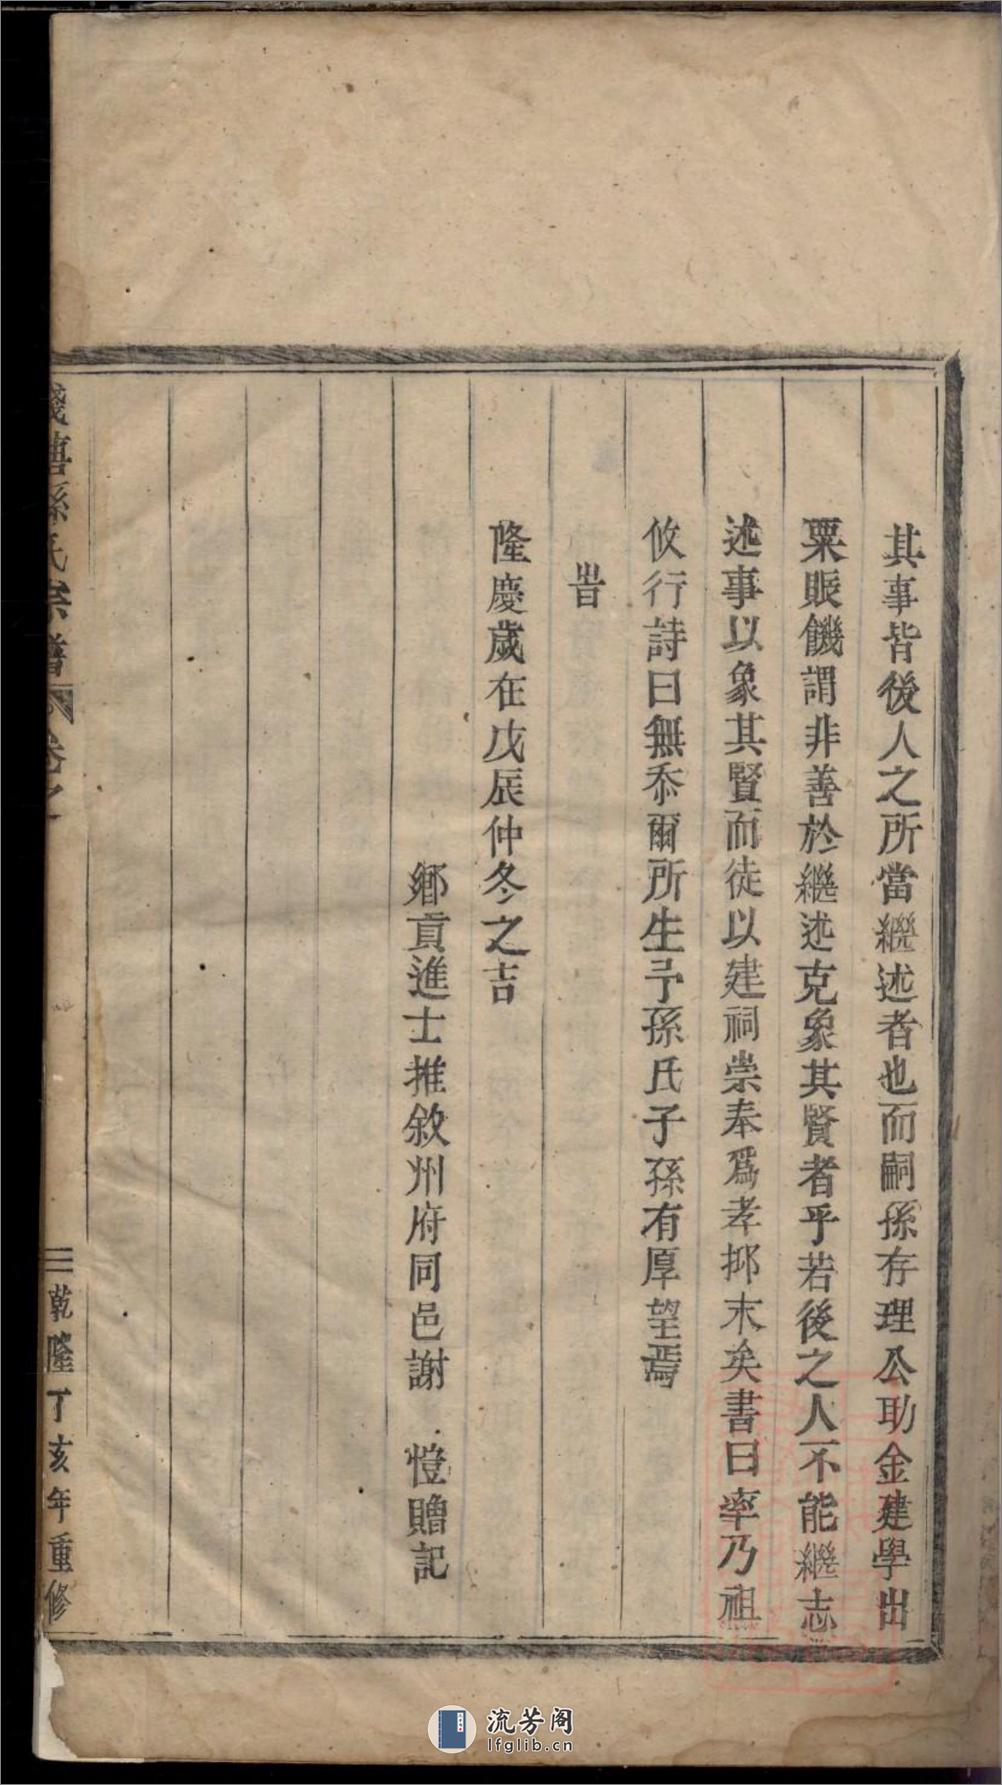 其事皆後人之所當繼述者也而嗣孫存理公助金建學出
粟賑饑謂非善於繼述克象其賢者乎若後之人不能繼志
述事以象其賢而徒以建祠崇奉爲孝抑末矣書曰率乃祖
攸行詩曰無忝爾所生予孫氏子孫有厚望焉
旹
隆慶歲在戊辰仲冬之吉
鄉貢進士推敘州府同邑謝 愷贈記
錢塘孫氏宗譜 卷之
二 乾隆丁亥年重修
流芳阁
lfglib.cn